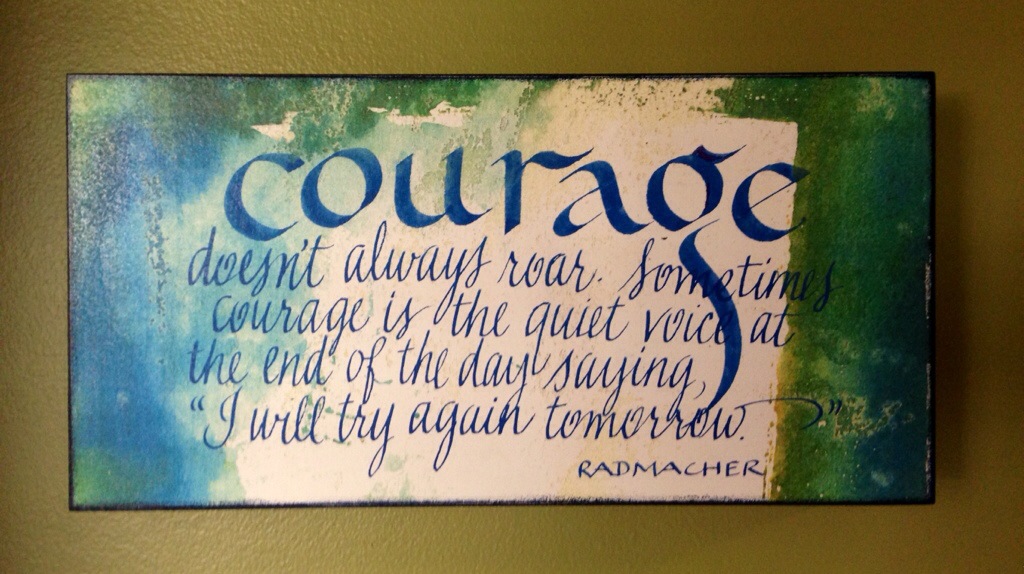 courage
doesn't always roar. Sometimes
courage is the quiet voice at
the end of the day saying,
"I will try again tomorrow."
RADMACHER